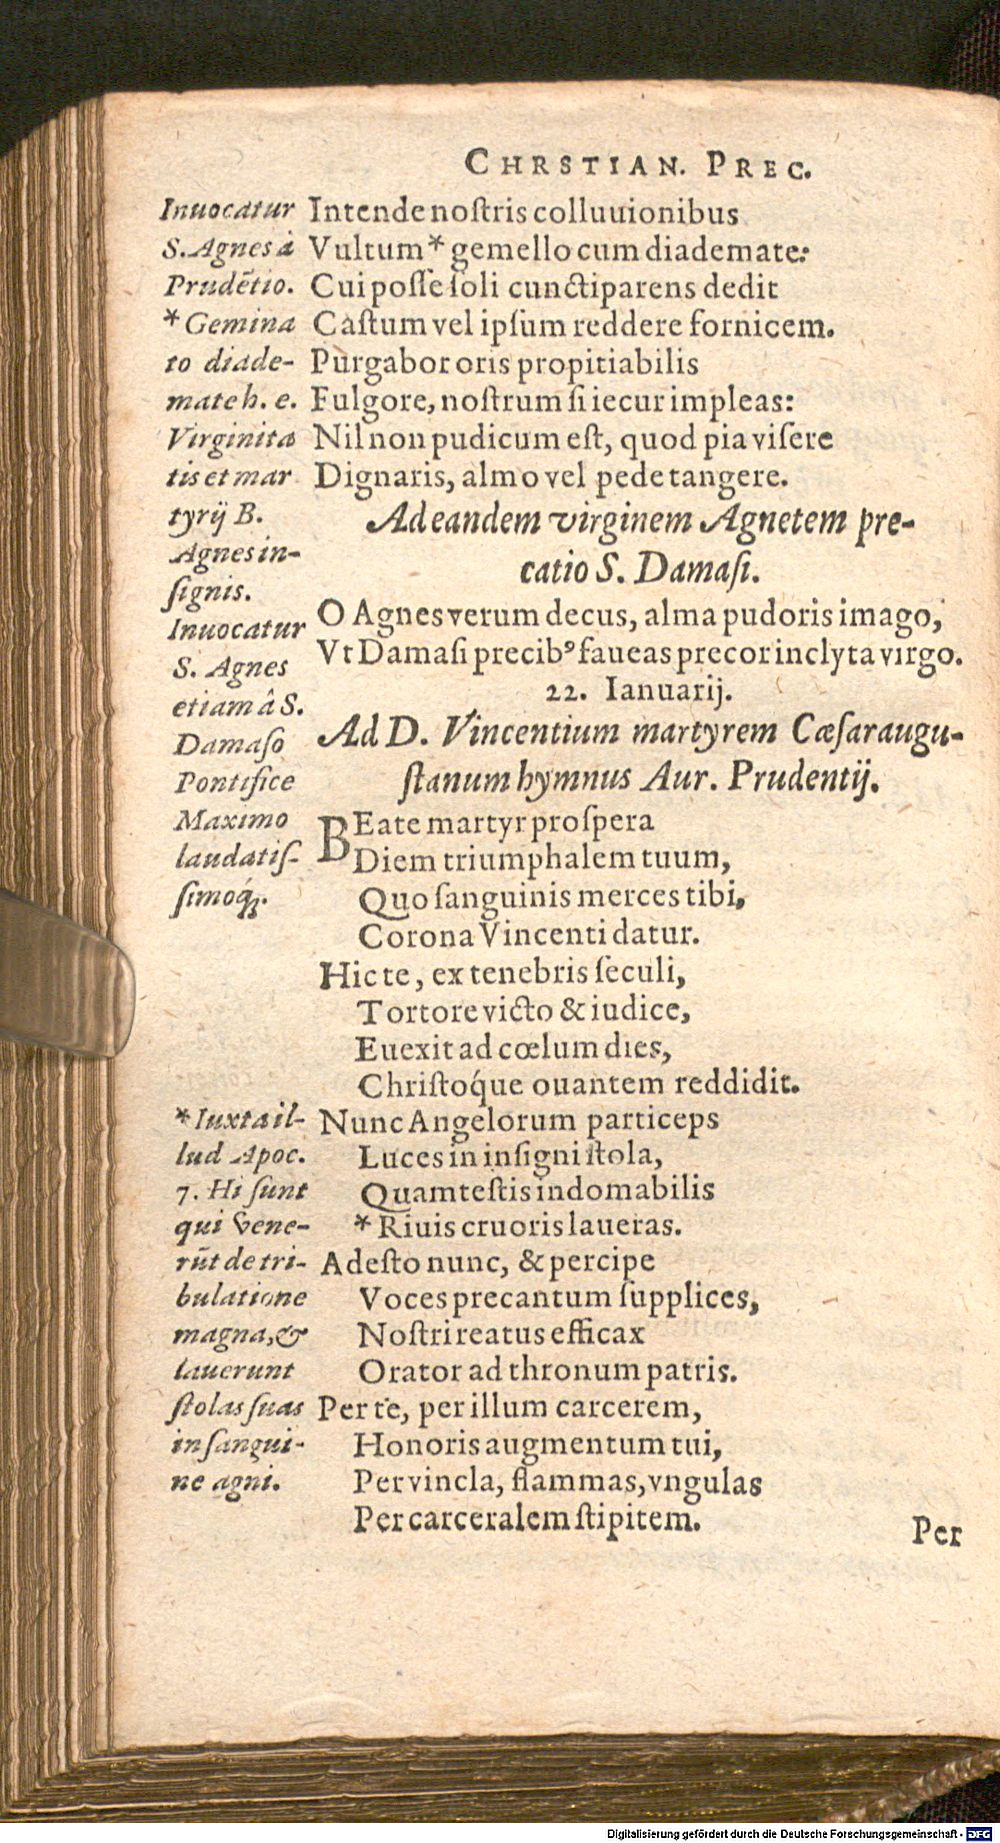 CHRSTIAN. PREC.
Inuocatur
S. Agnes à
Prudẽtio.
* Gemina
to diade-
mate h. e.
Virginita
tis et mar
tyrij B.
Agnes in-
ſignis.
Inuocatur
S. Agnes
etiam â S.
Damaſo
Pontifice
Maximo
laudatiſ-
ſimoq́;.
Intende noſtris colluuionibus
Vultum * gemello cum diademate:
Cui poſſe ſoli cunctiparens dedit
Caſtum vel ipſum reddere fornicem.
Purgabor oris propitiabilis
Fulgore, noſtrum ſi iecur impleas:
Nil non pudicum eſt, quod pia viſere
Dignaris, almo vel pede tangere.
Ad eandem virginem Agnetem pre-
catio S. Damaſi.
O Agnes verum decus, alma pudoris imago,
Vt Damaſi precibꝰ faueas precor inclyta virgo.
22. Ianuarij.
Ad D. Vincentium martyrem Cæſaraugu-
ſtanum hymnus Aur. Prudentij.
BEate martyr proſpera
Diem triumphalem tuum,
Quo ſanguinis merces tibi,
Corona Vincenti datur.
Hic te, ex tenebris ſeculi,
Tortore victo & iudice,
Euexit ad cœlum dies,
Chriſtoq́ue ouantem reddidit.
Nunc Angelorum particeps
Luces in inſigni ſtola,
Quam teſtis indomabilis
* Riuis cruoris laueras.
Adeſto nunc, & percipe
Voces precantum ſupplices,
Noſtri reatus efficax
Orator ad thronum patris.
Per te, per illum carcerem,
Honoris augmentum tui,
Per vincla, flammas, vngulas
Per carceralem ſtipitem.
* Iuxta il-
lud Apoc.
7. Hi ſunt
qui vene-
rũt de tri-
bulatione
magna, &
lauerunt
ſtolas ſuas
in ſangui-
ne agni.
Per
Digitalisierung gefördert durch die Deutsche Forschungsgemeinschaft - DFG